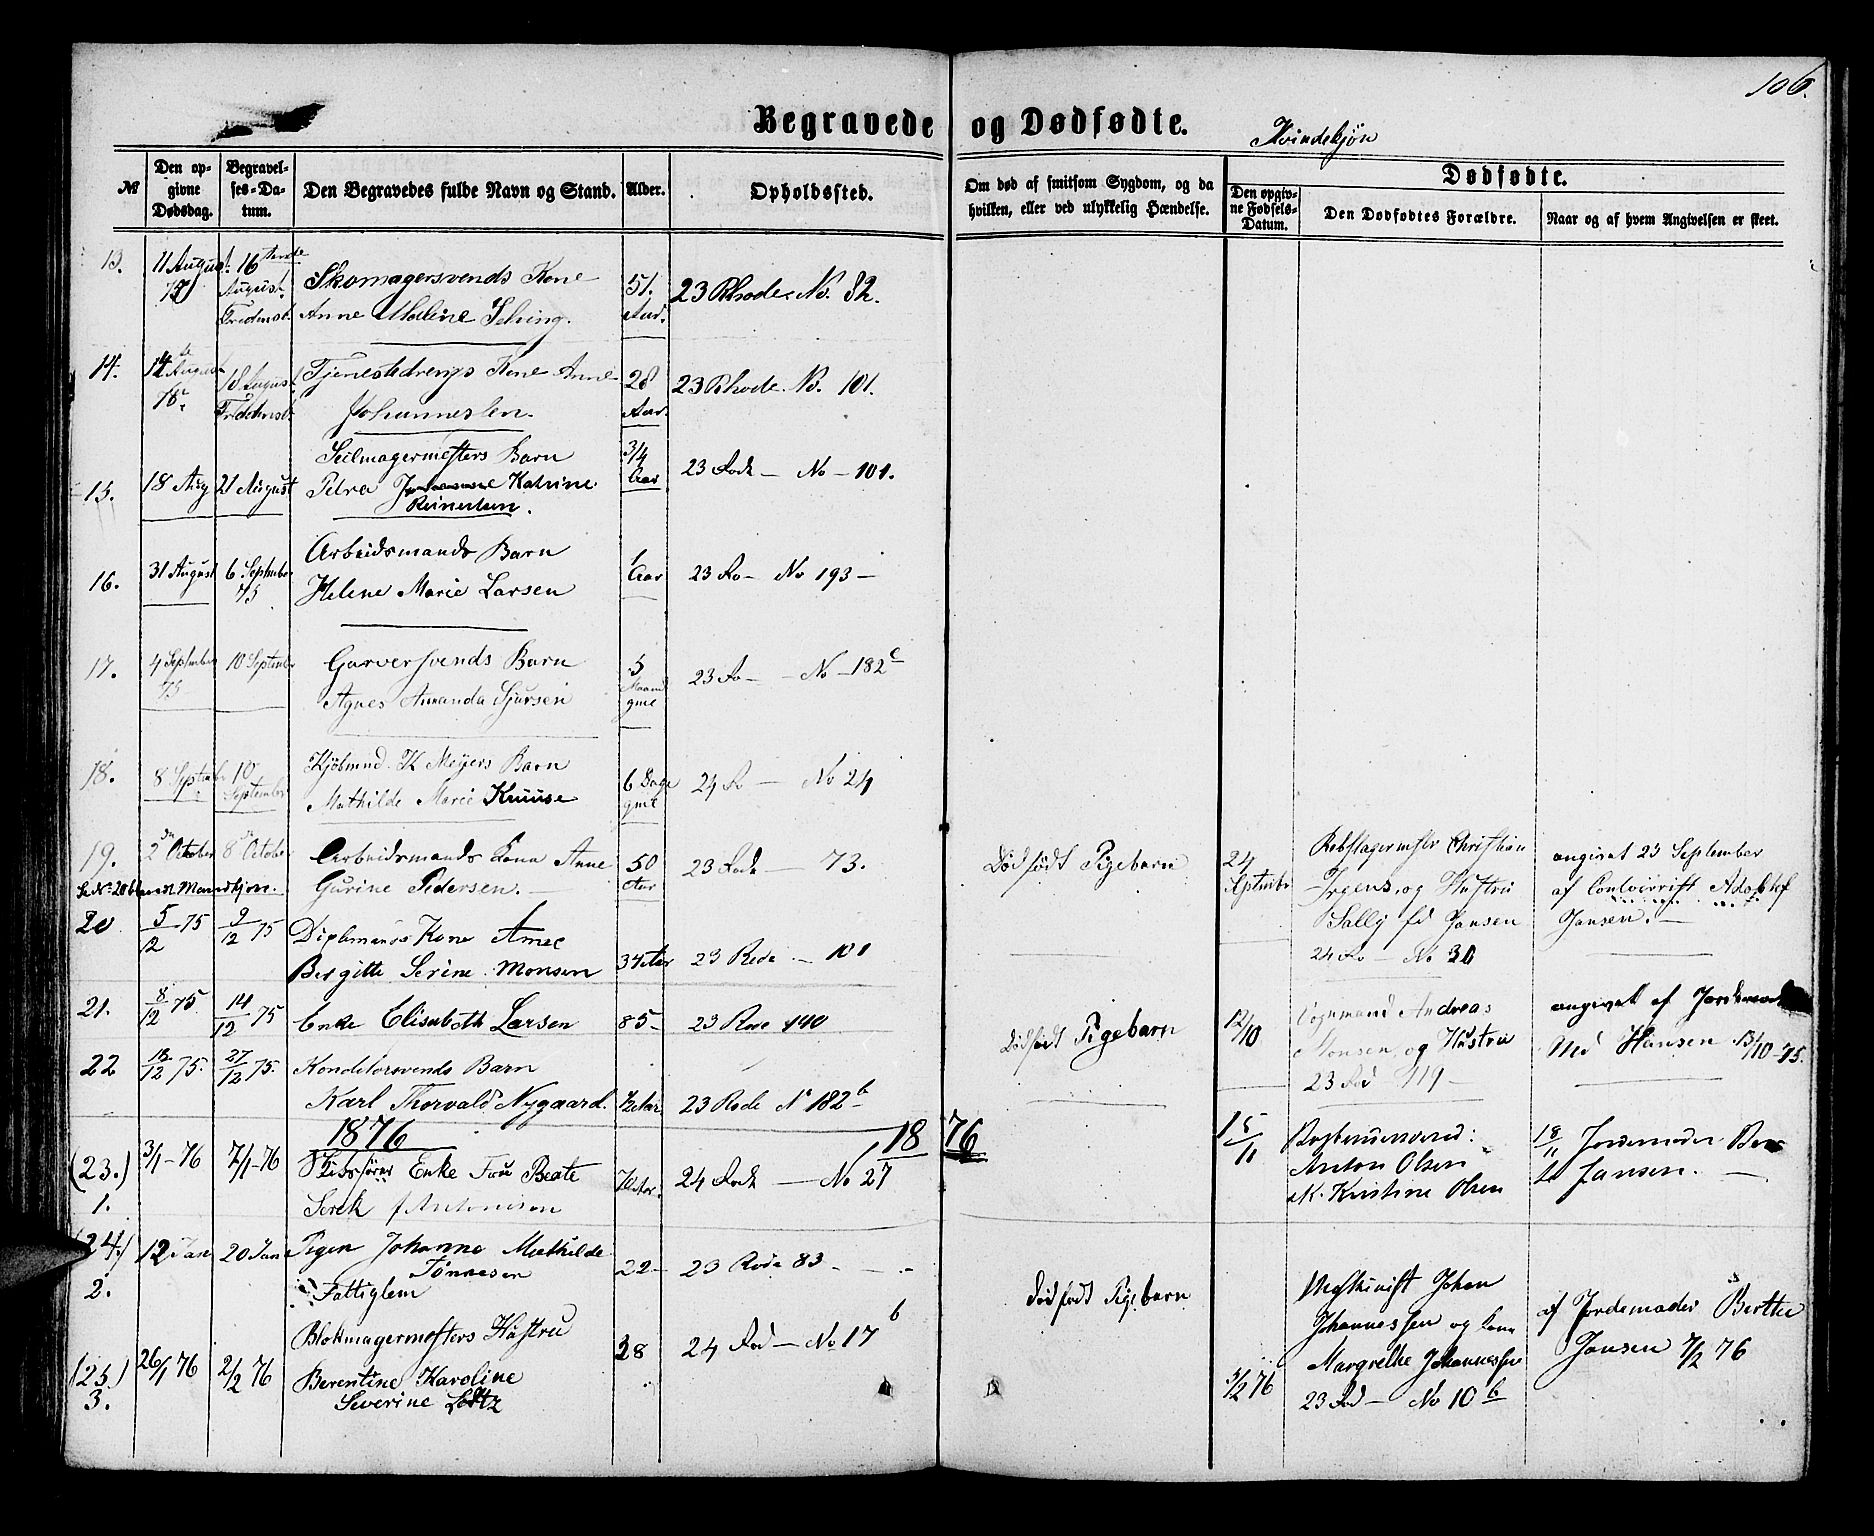 106.
Begravede og Dødfødte. Kvindekjøn
№ Den opgivne Dødsdag. Begravelses-Datum. Den Begravedes fulde Navn og Stand. Alder. Opholdssted. Om død af smitsom Sygdom, og da hvilken, eller ved ulykkelig Hændelse. Dødfødte.
Den opgivne Fødsels-Datum. Den Dødfødtes Forældre. Naar og af hvem Angivelsen er skeet.
13. 11 August 75 16 August Skomagersvends Kone 51. Aar. 23 Rhode No. 82.
Anne Malene
14. 14 August 18 August Tjenestedrengs Kone Anne 28 Aar. 23 Rhode No. 101.
Johannesen.
15. 18 Aug 21 August Seilmagermesters Barn 3/4 Aar 23 Rode — No — 101.
Petra Katrine
Reinertsen.
16. 31 August 6 September 75 Arbeidsmands Barn 1 Aar 23 Ro — No 193 —
Helene Marie Larsen
17. 4 September 75 10 September Garversvends Barn 5 Maaned gml 23 Ro — No — 182 c
Agnes Amanda Sjursen
18. 8 September 10 September Kjøbmd. K Meyers Barn 6 Dage gml 24 Ro — No 24
Mathilde Marie Kruuse
19. 2 October 8 October Arbeidsmands Kone Anne 50 Aar 23 Rode — 73.
Gurine Pedersen. —
Se No. 20 blandt Mandkjøn.
20 5/12 75 9/12 75 Kone
Bergitte Serine Monsen 34 Aar 23 Rode — 101
21. 8/12 75. 14/12 75 Enke Elisabeth Larsen 85 — 23 Rode 140
22 18/12 75. 27/12 75. Konditorsvends Barn
Karl Thorvald Nygaard. 1/2 Aar. 23 Rode No 182 b
1876 18 76
(23.) 1. 3/1 — 76 7/1 — 76 Enke Fru Beate 70 Aar. 24 Rode — No 27
f Antonisen
(24.) 2. 12 Jan 20 Jan Pigen Johanne Mathilde 22 — 23 Rode 83 —
Tønnesen
Fattiglem
(25.) 3. 26/1 76 2/2 76 Blokmagermesters Hustru 38 24 Rod — No 17 b
Berentine Karoline
Severine
Dødfødt Pigebarn 24 September Rebslagermester Christian
Irgens, og Hustru
Sally fd Jansen
24 Ro — No 30
angivet 23 September
af Adolf
Jansen. —
Dødfødt Pigebarn 12/10 Vognmand Andreas
Monsen, og Hustru
23 Rod 119 —
angivet af Jordemoder
Hansen 13/10 — 75.
15/11
Anton Olsen
Kristine Olsen
18/11 Jordemoder
Jansen. —
Dødfødt Pigebarn 3/2 76 Johan
Johannessen og Kone
Margrethe Johannessen
23 Rod — No 10 b
af Jordemoder Berthe
Jansen 7/2 76